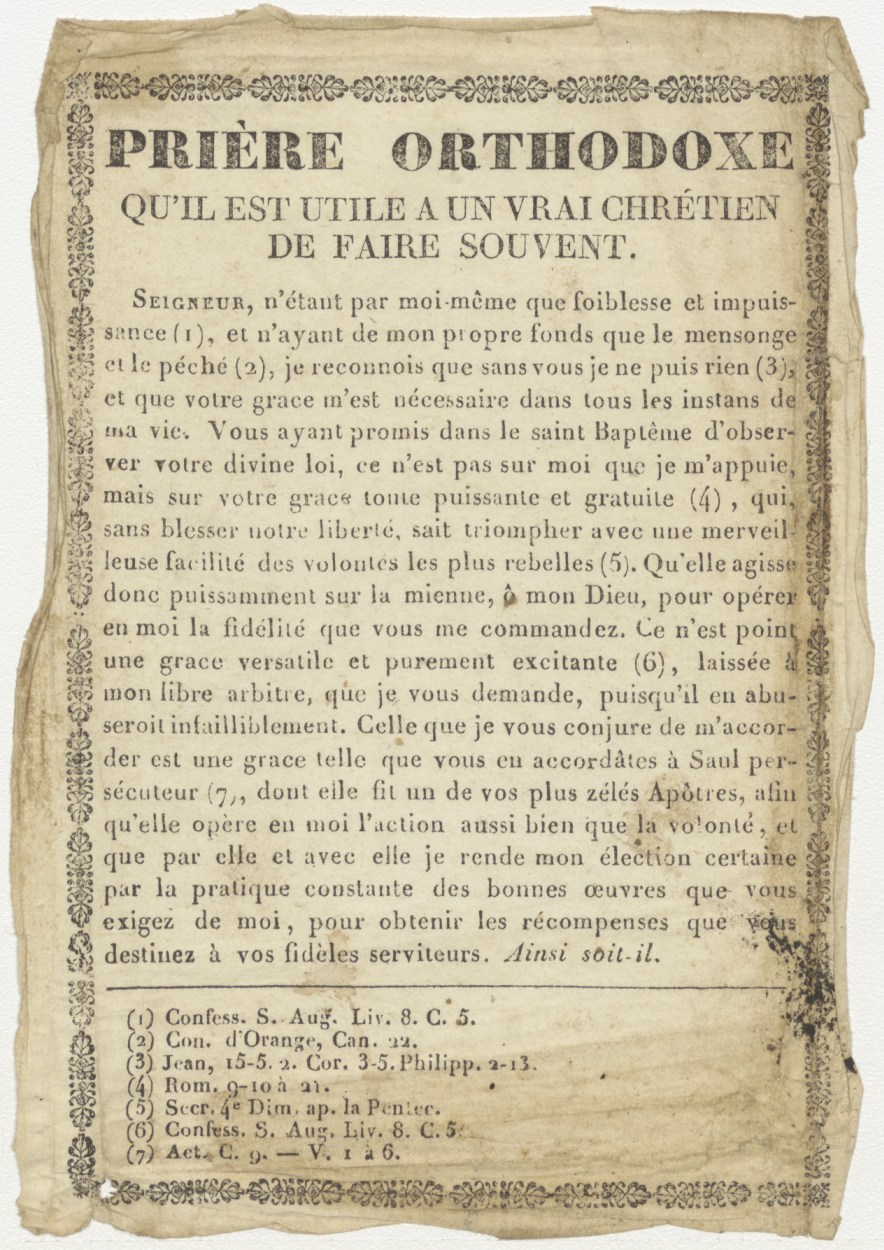 PRIÈRE ORTHODOXE
QU'IL EST UTILE A UN VRAI CHRÉTIEN
DE FAIRE SOUVENT.
SEIGNEUR, n'étant par moi-même que foiblesse et impuis-
sance (1), et n'ayant de mon propre fonds que le mensonge
et le péché (2), je reconnois que sans vous je ne puis rien (3),
et que votre grace m'est nécessaire dans tous les instans de
ma vie. Vous ayant promis dans le saint Baptême d'obser-
ver votre divine loi, ce n'est pas sur moi que je m'appuie,
mais sur votre grace toute puissante et gratuite (4), qui,
sans blesser notre liberté, sait triompher avec une merveil-
leuse facilité des volontés les plus rebelles (5). Qu'elle agisse
donc puissamment sur la mienne, ô mon Dieu, pour opérer
en moi la fidélité que vous me commandez. Ce n'est point
une grace versatile et purement excitante (6), laissée à
mon libre arbitre, que je vous demande, puisqu'il en abu-
seroit infailliblement. Celle que je vous conjure de m'accor-
der est une grace telle que vous en accordâtes à Saul per-
sécuteur (7), dont elle fit un de vos plus zélés Apôtres, afin
qu'elle opère en moi l'action aussi bien que la volonté, et
que par elle et avec elle je rende mon élection certaine
par la pratique constante des bonnes œuvres que vous
exigez de moi, pour obtenir les récompenses que vous
destinez à vos fidèles serviteurs. Ainsi soit-il.
(1) Confess. S. Aug. Liv. 8. C. 5.
(2) Con. d'Orange, Can. 22.
(3) Jean, 15-5. 2. Cor. 3-5. Philipp. 2-13.
(4) Rom. 9-10 à 21.
(5) Secr. 4e Dim. ap. la Pentec.
(6) Confess. S. Aug. Liv. 8. C. 5.
(7) Act. C. 9. — V. 1 à 6.